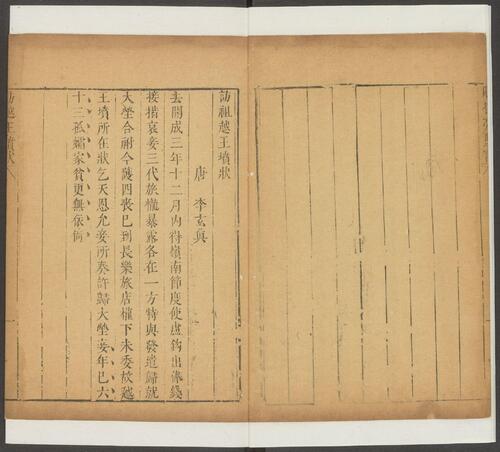 訪祖越王墳狀
唐 李玄真
去開成三年十二月內得嶺南節度使盧鈞出俸錢
接措哀妾三代旅櫬暴露各在一方特與發遣歸就
大塋合祔今護四喪已到長樂旅店權下未委故越
王墳所在狀乞天恩允妾所奏許歸大塋妾年已六
十三孤孀家貧更無依倚
訪越王墳狀